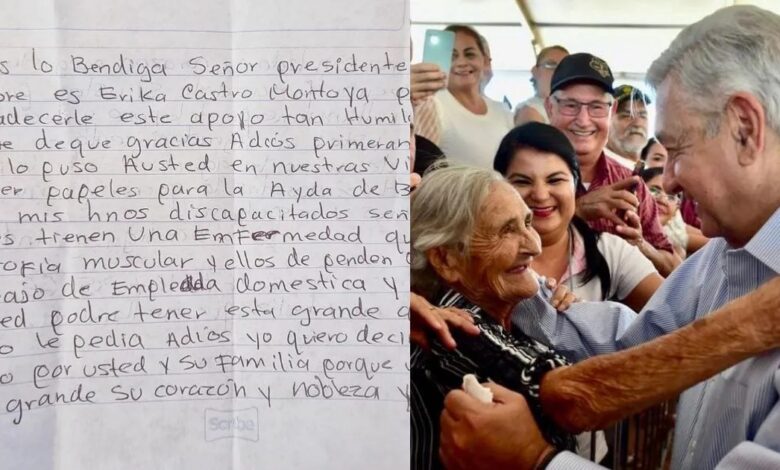 s lo Bendiga Señor presidente
bre es Erika Castro Montoya p
adecerle este apoyo tan Humil
e deque gracias Adiós primeran
lo puso Austed en nuestras Vi
er papeles para la Ayda de B
mis hnos discapacitados señ
s trenen Una Emfermedad qu
ofia muscular y ellos de penden
ajo de Empleada domestica y
ed podre tener esta grande a
o le pedia Adios yo quero deci
o por usted y su Familia porque
grande su corazón y nobleza y
Scribe